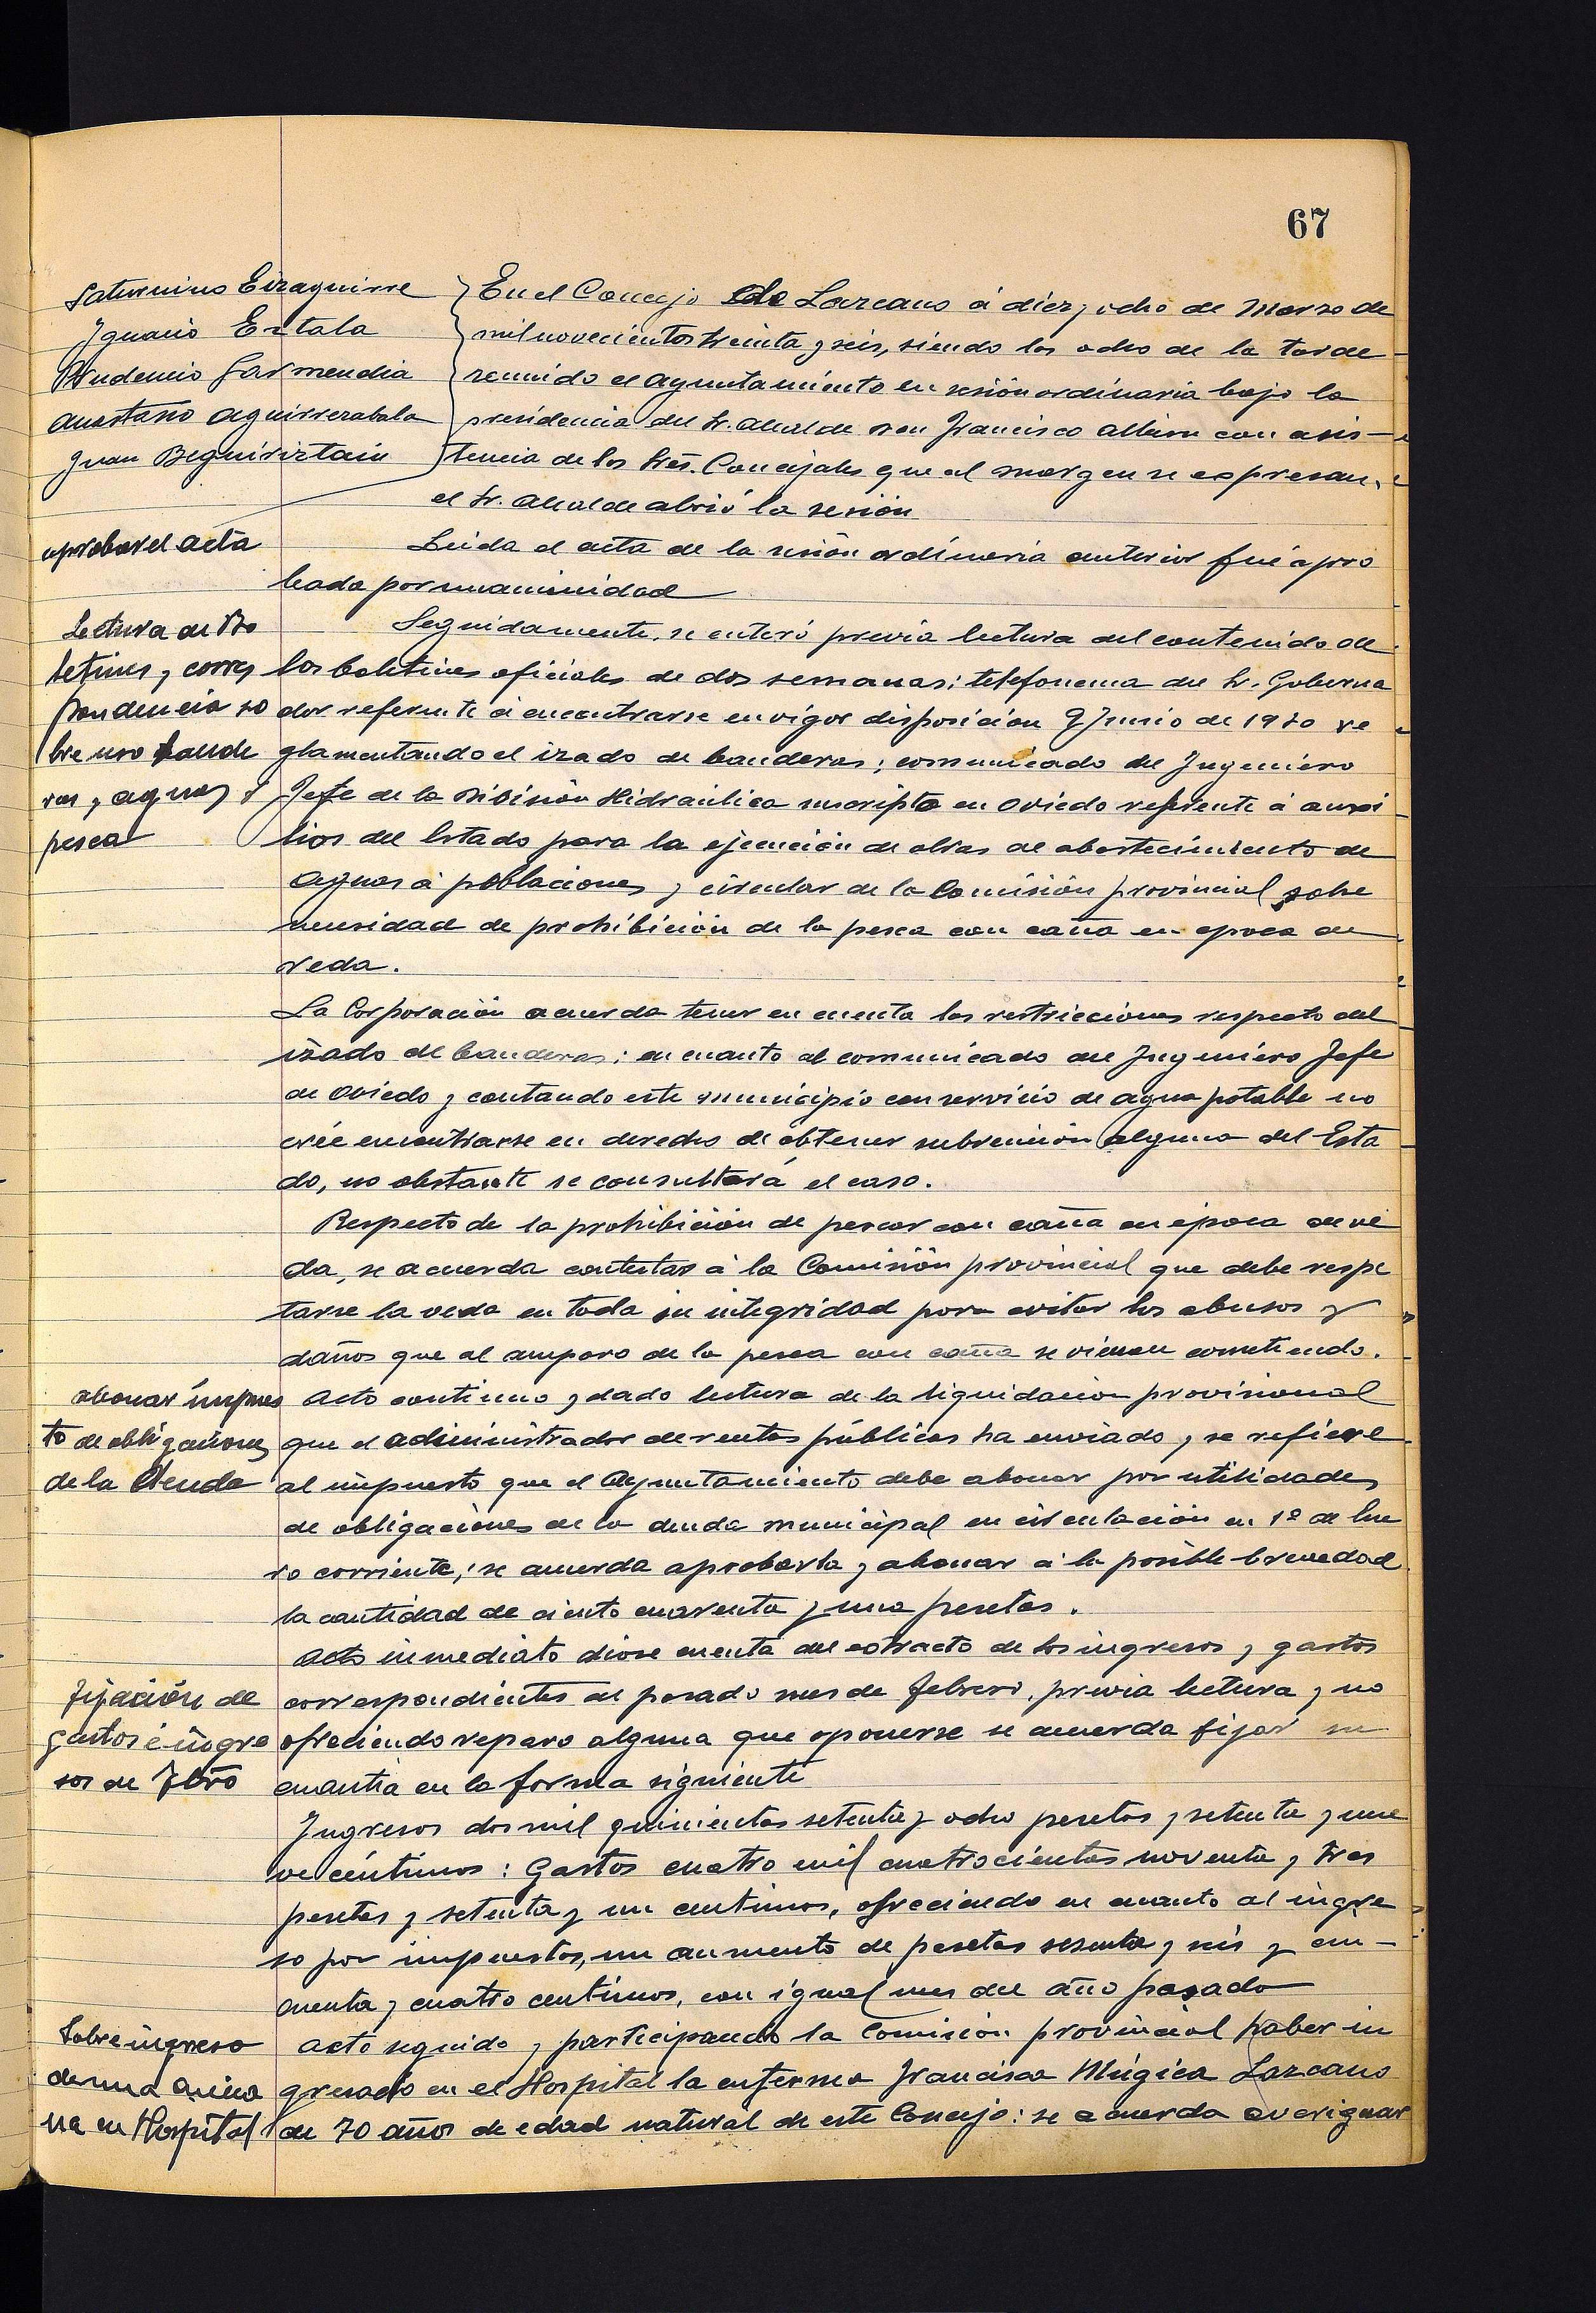 67
Saturnino Eizaguirre
Ignacio Estala
Prudencio Garmendia
Anastasio Aguirrezabala
Juan Beguiristain
En el Concejo de Lazcano á diez y ocho de Marzo de
mil novecientos treinta y seis, siendo las ocho de la tarde
reunido el ayuntamiento en sesión ordinaria bajo la
presidencia del Sr. Alcalde Don Francisco Albisu con asis-
tencia de los Sres. Concejales que al margen se expresan,
el Sr. Alcalde abrió la sesión
aprobar el acta
Leida el acta de la sesión ordinaria anterior fué apro
bada por unanimidad
Lectura de Bo
letines y corres
pondencia so
bre uso bande
ras, aguas y
pesca
Seguidamente, se enteró previa lectura del contenido de
los boletines oficiales de dos semanas; telefonema del Sr. Goberna
dor referente á encontrarse en vigor disposición 9 Junio de 1930 re
glamentando el izado de banderas; comunicado del Ingeniero
Jefe de la Division Hidraúlica suscripto en Oviedo referente á auxi
lios del Estado para la ejecución de obras de abastecimiento de
aguas á poblaciones y circular de la Comisión provincial sobre
necesidad de prohibición de la pesca con caña en epoca de
veda.
La Corporación acuerda tener en cuenta las restricciones respecto del
izado de banderas; en cuanto al comunicado del Ingeniero Jefe
de Oviedo y contando este municipio con servicio de agua potable no
crée encontrarse en derecho de obtener subvención alguna del Esta
do, no obstante se consultará el caso.
Respecto de la prohibición de pescar con caña en época de ve
da, se acuerda contestar á la Comisión provincial que debe respe
tarse la veda en toda su integridad para evitar los abusos y
daños que al amparo de la pesca con caña se vienen cometiendo.
abonar impues
to de obligaciones
de la Deuda
Acto continuo y dado lectura de la liquidación provisional
que el administrador de rentas públicas ha enviado y se refiere
al impuesto que el Ayuntamiento debe abonar por utilidades
de obligaciones de la deuda municipal en circulación en 1º de Ene
ro corriente; se acuerda aprobarla y abonar á la posible brevedad
la cantidad de ciento cuarenta y una pesetas.
Fijación de
gastos é ingre
sos de Fbro
Acto inmediato diose cuenta del extracto de los ingresos y gastos
correspondientes al pasado mes de febrero, previa lectura y no
ofreciendo reparo alguna que oponerse se acuerda fijar su
cuantia en la forma siguiente
Ingresos dos mil quinientas setenta y ocho pesetas y setenta y nue
ve céntimos: Gastos cuatro mil cuatrocientas noventa y tres
pesetas y setenta y un centimos, ofreciendo en cuanto al ingre
so por impuestos, un aumento de pesetas sesenta y seis y cin-
cuenta y cuatro centimos, con igual mes del año pasado
Sobre ingreso
de una ancia
na en Hospital
Acto seguido y participando la Comisión provincial haber in
gresado en el Hospital la enferma Francisca Múgica Lazcano
de 70 años de edad natural de este Concejo: se acuerda averiguar